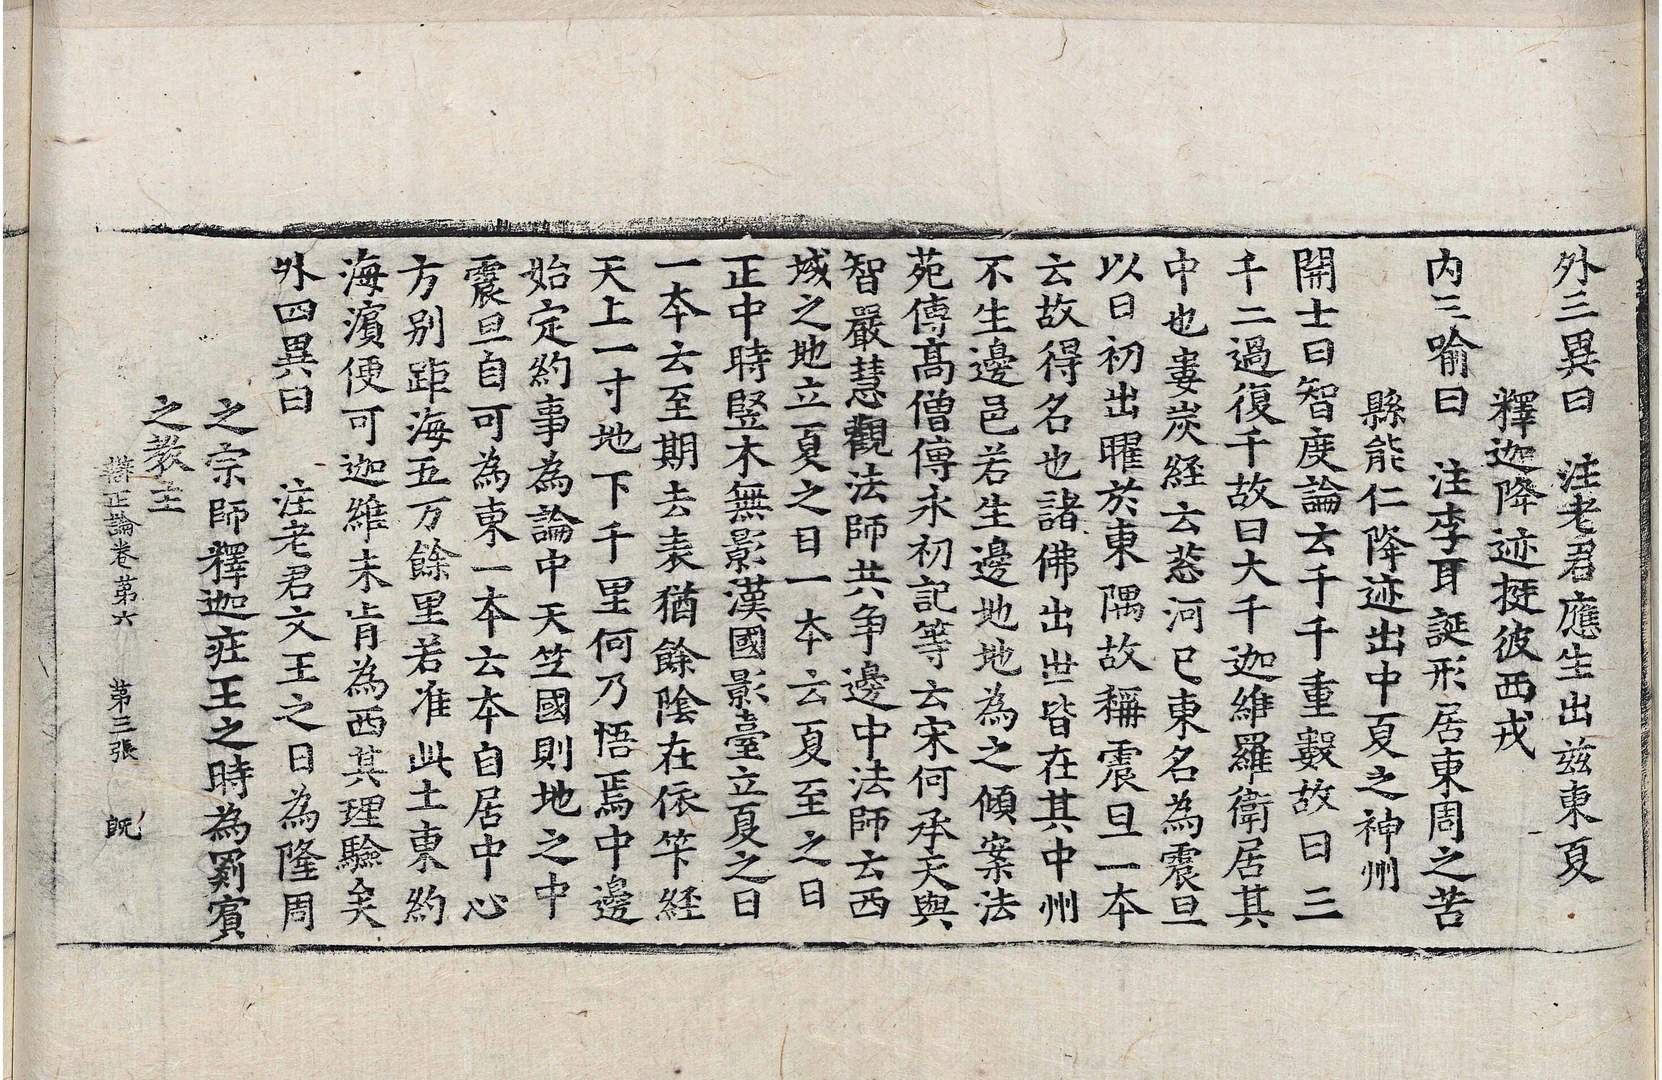 外三異曰　注老君應生出兹東夏
釋迦降迹挺彼西戎
内三喻曰　注李耳誕形居東周之苦
縣能仁降迹出中夏之神州
開士曰智度論云千千重數故曰三
千二過復千故曰大千迦維羅衛居其
中也婁炭経云葱河已東名為震旦
以日初出曜於東隅故稱震旦一本
云故得名也諸佛出世皆在其中州
不生邊邑若生邊地地為之傾案法
苑傳髙僧傳永初記等云宋何承天與
智嚴慧觀法師共争邊中法師云西
域之地立夏之日一本云夏至之日
正中時竪木無影漢國影臺立夏之日
一本云至期去表猶餘陰在依笇経
天上一寸地下千里何乃悟焉中邊
始定約事為論中天竺國則地之中
震旦自可為東一本云本自居中心
方别距海五万餘里若准此土東約
海濵便可迦維未肯為西其理驗矣
外四異曰　注老君文王之日為隆周
之宗師釋迦莊王之時為罽賓
之教主
辯正論卷第六　第三張　旣